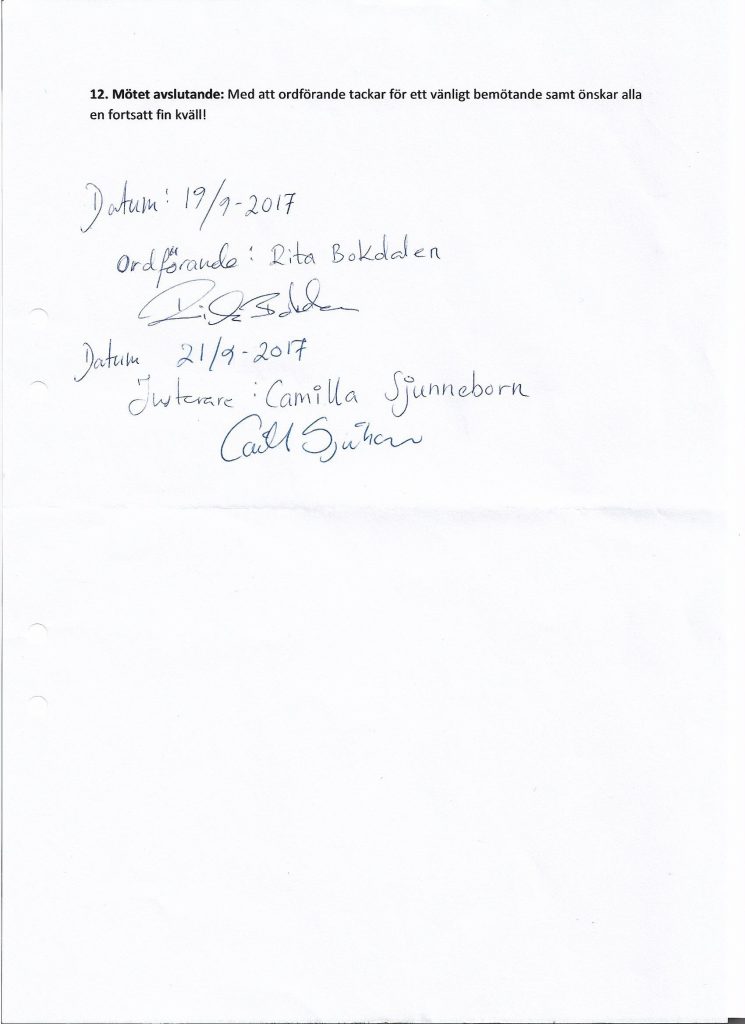 12. Mötet avslutande: Med att ordförande tackar för ett vänligt bemötande samt önskar alla
en fortsatt fin kväll!
Datum: 19/9-2017
Ordförande: Rita Bokdalen
Datum 21/9-2017
Justerare: Camilla Sjunneborn